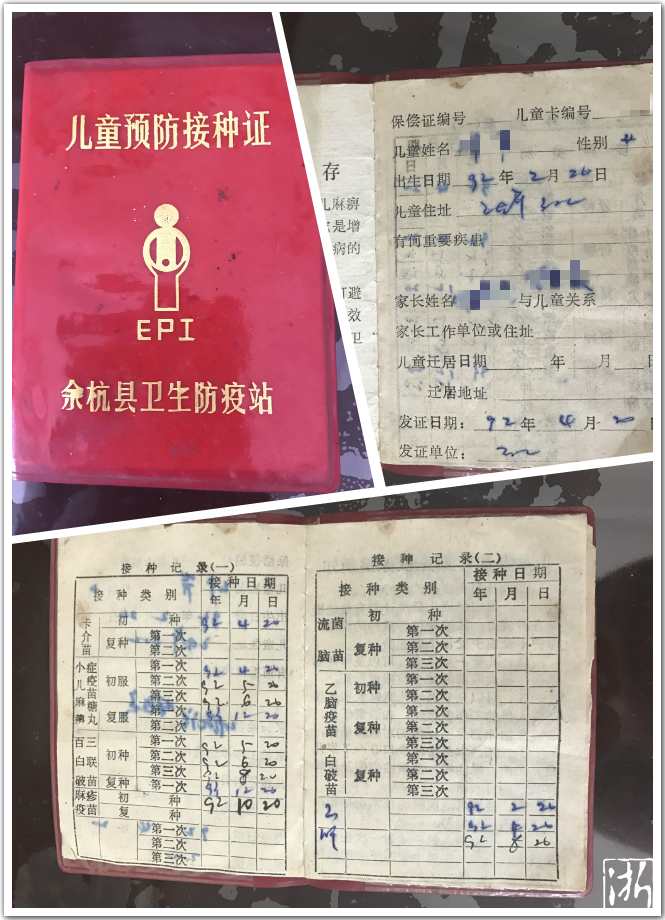 儿童预防接种证
EPI
余杭县卫生防疫站
存
儿麻痹
是增
病的
避
效
卫
保偿证编号 儿童卡编号
儿童姓名 性别 女
出生日期 92 年 2 月 26 日
儿童住址
有何重要疾患
家长姓名 与儿童关系
家长工作单位或住址
儿童迁居日期 年 月
迁居地址
发证日期: 92 年 4 月 20
发证单位:
接种记录(一)
接种类别 接种日期
年 月 日
卡介苗 初种 92 4 20
复种 第一次
第二次
小儿麻痹症疫苗糖丸 初服 第一次 92 4 20
第二次 92 5 20
第三次 92 6 20
复服 第一次 93 12 20
第二次
百白破三联苗 初种 第一次 92 5 20
第二次 92 6 20
第三次 92 8 20
复种 第一次 93 12 20
麻疹疫苗 初种 92 10 20
复种
第一次
第二次
第三次
接种记录(二)
接种类别 接种日期
年 月 日
流脑菌苗 初种
复种 第一次
第二次
第三次
乙脑疫苗 初种 第一次
第二次
复种 第一次
第二次
第三次
白破苗 复种 第一次
第二次
第三次
乙 92 2 26
肝 92 4 26
92 8 26
浙